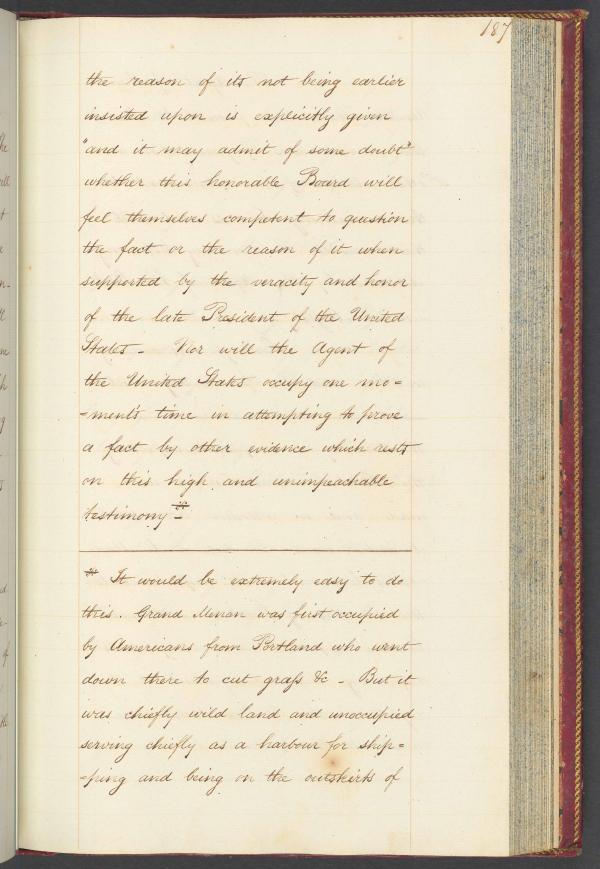 187
the reason of its not being earlier
insisted upon is explicitly given
"and it may admit of some doubt"
whether this honorable Board will
feel themselves competent to question
the fact or the reason of it when
supported by the veracity and honor
of the late President of the United
States - Nor will the Agent of
the United States occupy one mo=
=ment's time in attempting to prove
a fact by other evidence which rests
on this high and unimpeachable
testimony *
* It would be extremely easy to do
this. Grand Menan was first occupied
by Americans from Portland who went
down there to cut grass &c - But it
was chiefly wild land and unoccupied
serving chiefly as a harbour for ship=
=ping and being on the outskirts of